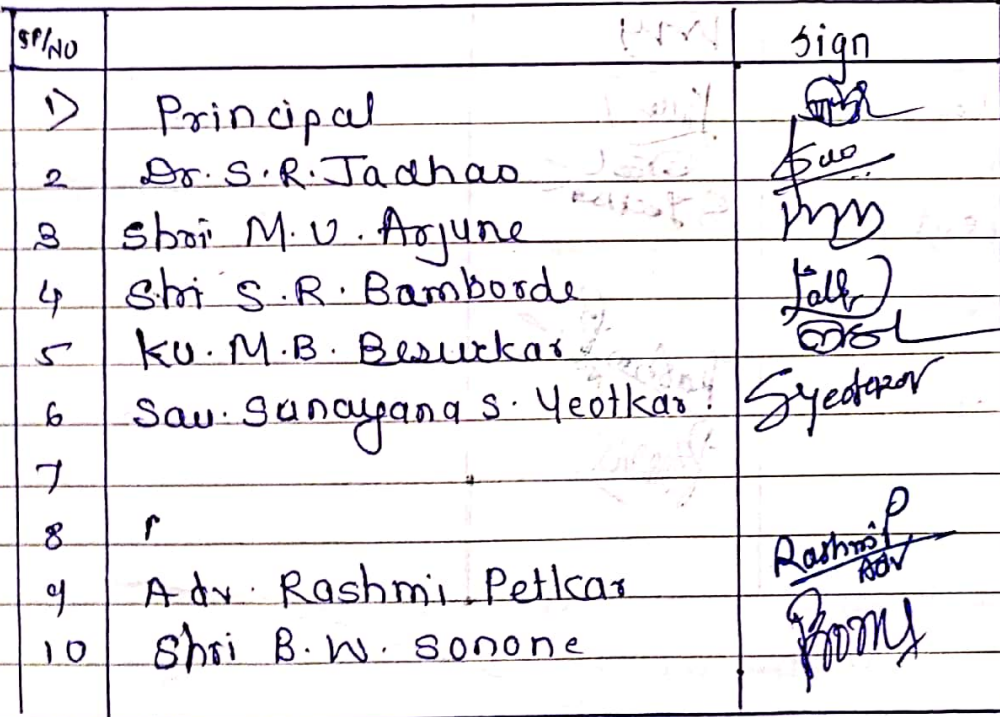 SR/NO sign
1) Principal
2 Dr. S. R. Jadhao
3 Shri M. V. Arjune
4 Shri S. R. Bamborde
5 Ku. M. B. Besurkar
6 Sau. Sunayana S. Yeotkar. Syeotkar
7
8
9 Adv. Rashmi Petkar Rashmi P Adv
10 Shri B. W. Sonone